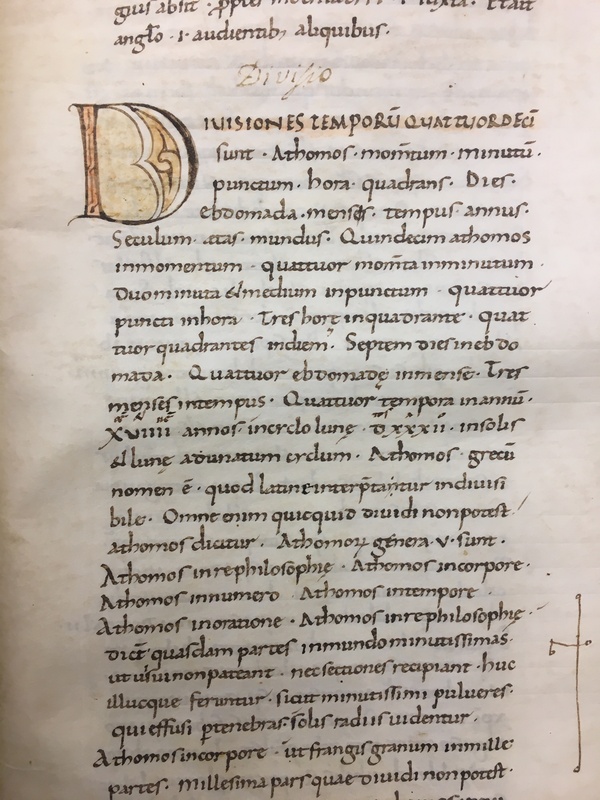 anglo · i · audientib; aliquibus ·
Divisio
DIUISIONES TEMPORŪ QUATTUORDECĪ
sunt · Athomos · momtum · minutū ·
punctum · hora · quadrans · Dies ·
ebdomada · menses · tempus · annus ·
Seculum · ętas · mundus · Quindecim athomos
inmomentum · quattuor momta inminutum ·
Duominuta &medium inpunctum · quattuor
puncti inhora · Tres horę inquadrante · quat
tuor quadrantes indiem · Septem dies inebdo
mada · Quattuor ebdomadę inmense · Tres
menses intempus · Quattuor tempora inannū ·
XVIIII annos incyclo lunę · DXXXII · insolis
&lunę adunatum cyclum · Athomos grecū
nomen ē · quod latine interp̄tantur indiuisi
bile · Omne enim quicquid diuidi nonpotest
athomos dicitur · Athomoꝝ genera · v · sunt ·
Athomos inrephilosophię · Athomos incorpore ·
Athomos innumero · Athomos intempore
Athomos inoratione · Athomos inrephilosophię ·
dict̄ quasdam partes inmundo minutissimas
ut uisui nonpateant · necsectiones recipiant · huc
illucque feruntur · sicut minutissimi pulueres ·
qui effusi p̱tenebras solis radiis uidentur ·
Athomos incorpore · ut frangis granum inmille
partes · Millesima pars quae diuidi nonpotest ·